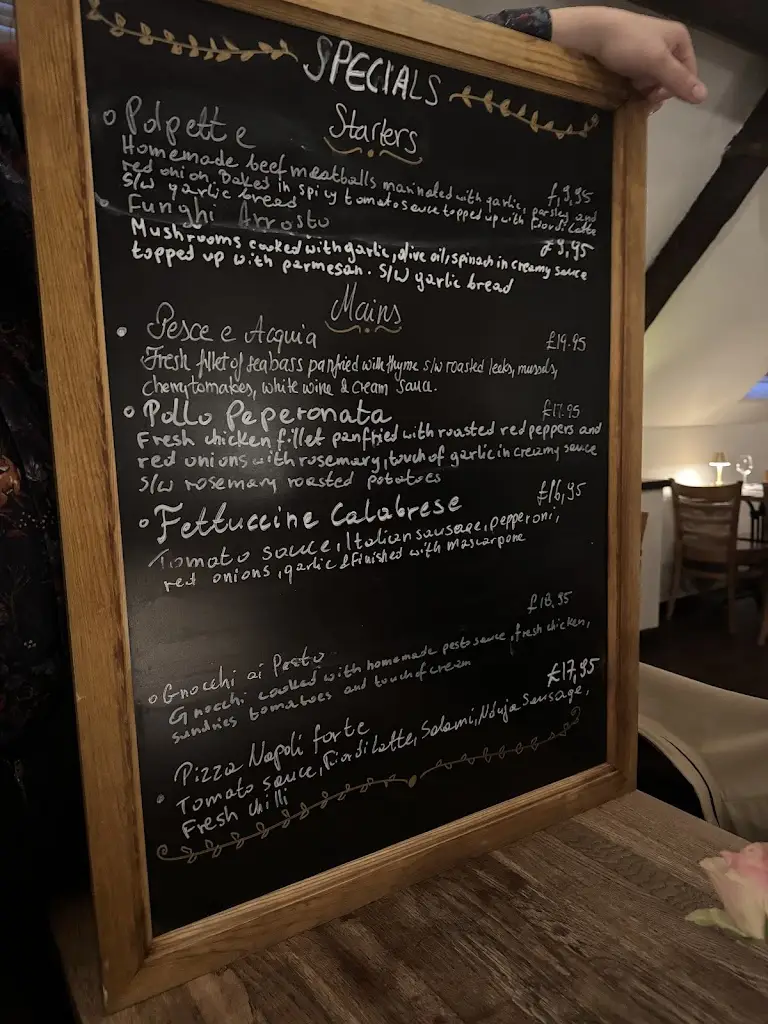 SPECIALS
Starters
Polpette
Homemade beef meatballs marinated with garlic, parsley and
red onion. Baked in spicy tomato sauce topped up with Fiordilatte
s/w garlic bread
£9,95
Funghi Arrosto
£9,95
Mushrooms cooked with garlic, olive oil, spinach in creamy sauce
topped up with parmesan. S/W garlic bread
Mains
Pesce e Acquia
£19.95
Fresh fillet of seabass panfried with thyme s/w roasted leeks, mussels,
cherry tomatoes, white wine & cream sauce.
Pollo Peperonata
£17.95
Fresh chicken fillet panfried with roasted red peppers and
red onions with rosemary, touch of garlic in creamy sauce
s/w rosemary roasted potatoes
Fettuccine Calabrese
£16,95
Tomato sauce, Italian sausage, pepperoni,
red onions, garlic & finished with mascarpone
£18.95
Gnocchi ai Pesto
Gnocchi cooked with homemade pesto sauce, fresh chicken,
sundries tomatoes and touch of cream
£17,95
Pizza Napoli forte
Tomato sauce, Fiordilatte, Salami, Nduja Sausage,
Fresh chilli